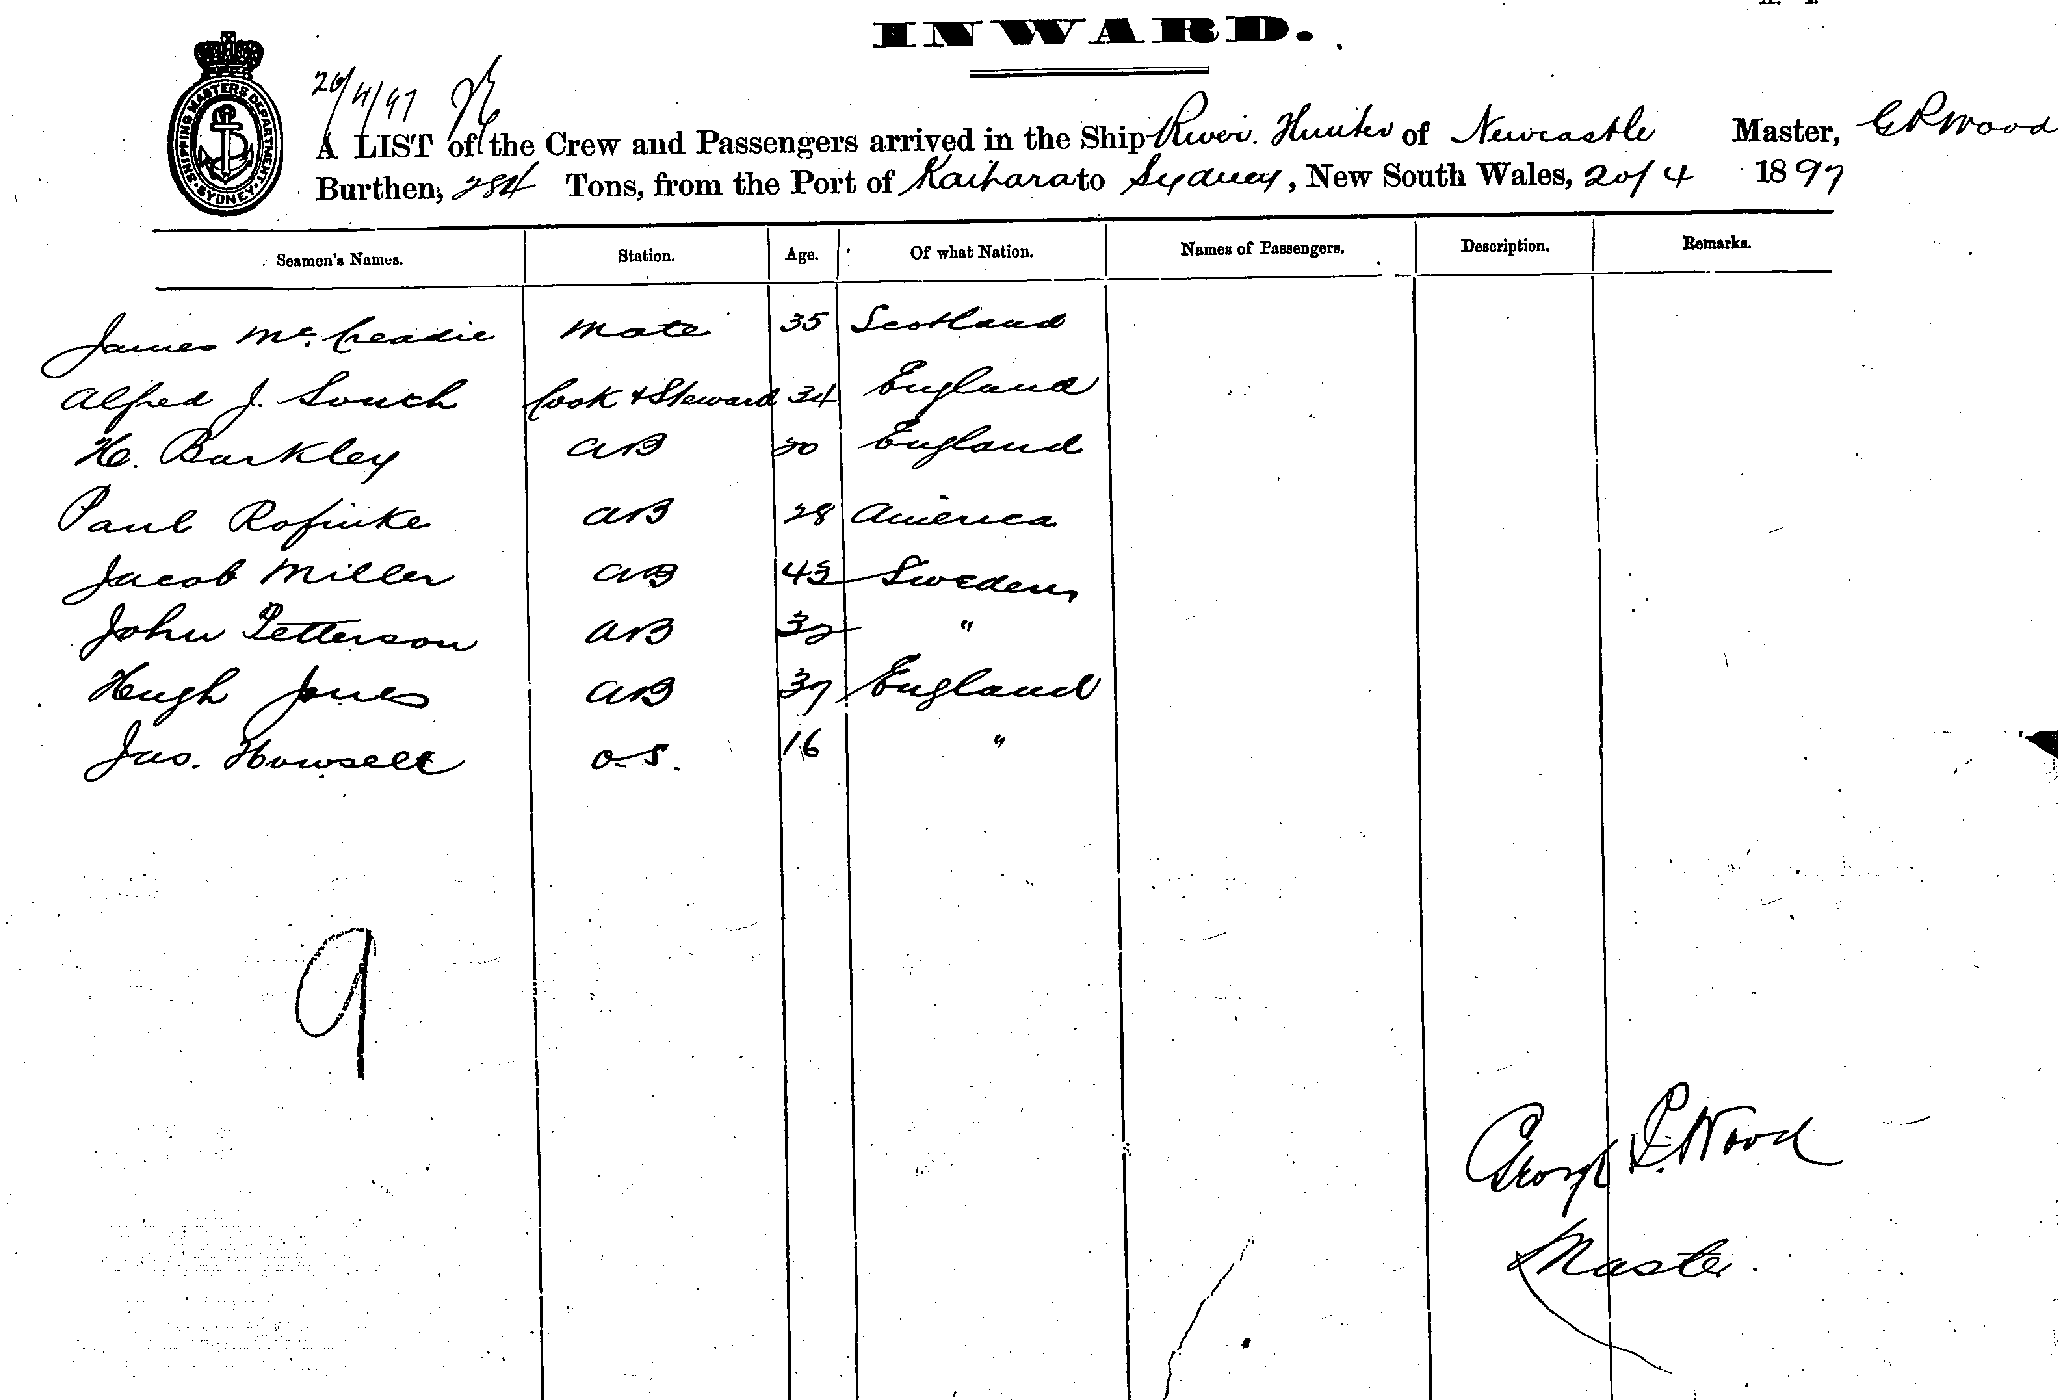 INWARD.
SHIPPING MASTERS DEPARTMENT SYDNEY
20/4/97
A LIST of the Crew and Passengers arrived in the Ship River Hunter of Newcastle Master, G P Wood
Burthen, 284 Tons, from the Port of Kaihara to Sydney, New South Wales, 20/4 1897
Seamen's Names. Station. Age. Of what Nation. Names of Passengers. Description. Remarks.
James McCreadie Mate 35 Scotland
Alfred J. Souch Cook & Steward 34 England
H. Barkley AB 30 England
Paul Rofinke AB 28 America
Jacob Miller AB 43 Sweden
John Petterson AB 32 "
Hugh Jones AB 37 England
Jas. Howsell O.S. 16 "
9
George P. Wood
Master.